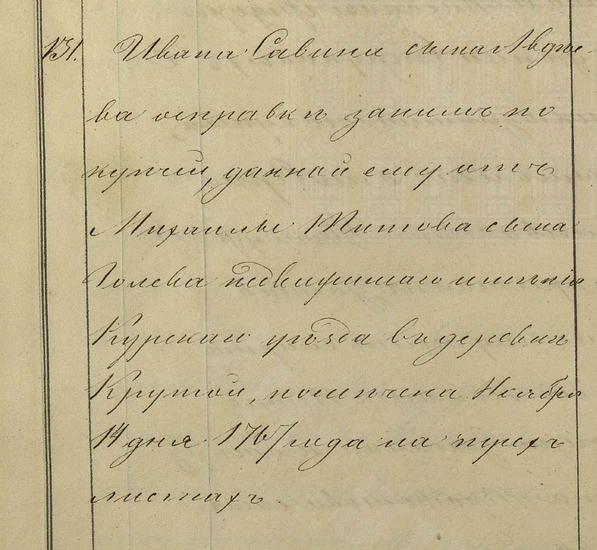 131. Ивана Савина сына Авдѣе-
ва о справкѣ за нимъ по
купчей, данной ему отъ
Михайлы Титова сына
Голева недвижимаго имѣнія
Курскаго уѣзда въ деревнѣ
Крутой, помѣчена Ноября
14 дня 1767 года на трехъ
листахъ.